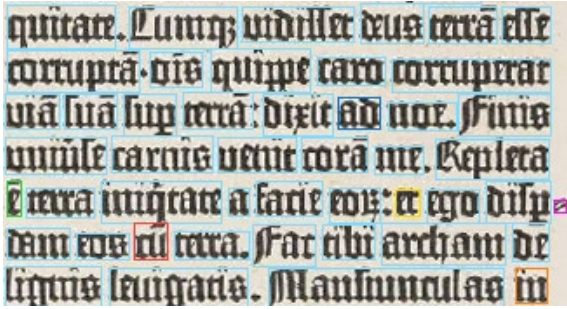 quitate. Cumqꝫ vidisset deus terrā esse
corruptā·oīs quippe caro corruperat
viā suā sup terrā: dixit ad noe. Finis
uniūse carnis venit corā me. Repleta
ē terra iniq̄tate a facie eoꝝ: et ego dispꝫ
dam eos cū terra. Fac tibi archam de
lignis levigatis. Mansiunculas in